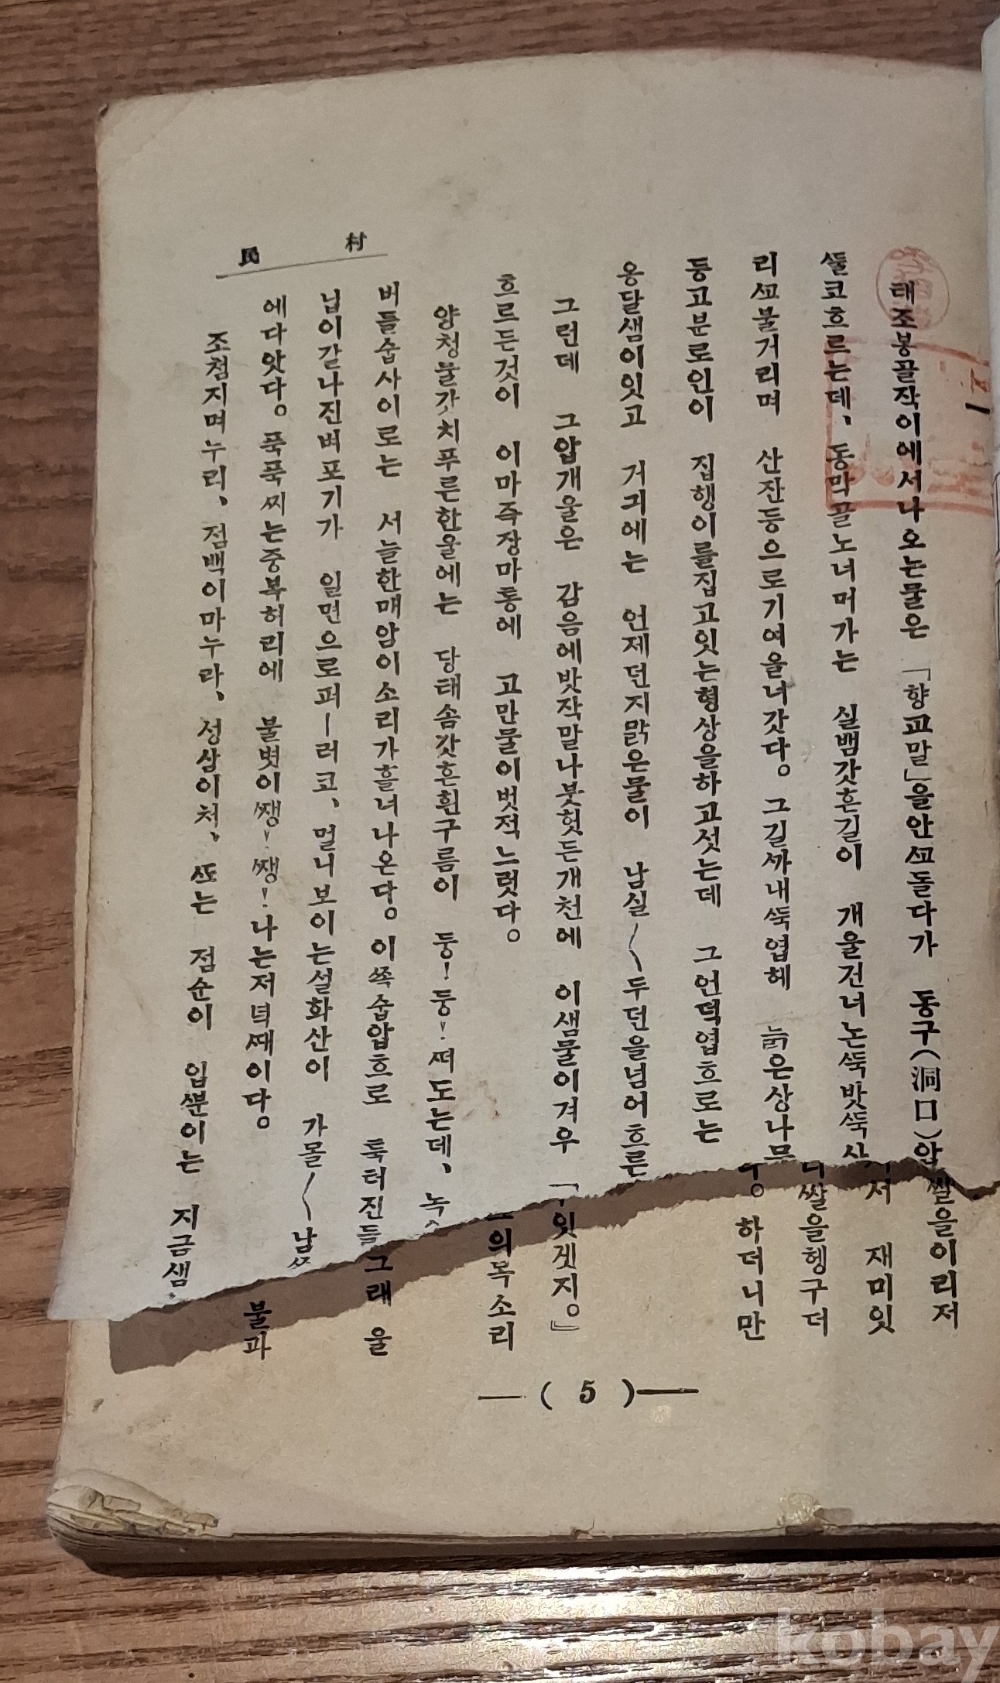 民 村
一
태조봉골작이에서나오는물은 「향교말」을안ᄭᅩ돌다가 동구(洞口)압
ᄯᅮᆯ코흐르는데、동막골노너머가는 실뱀갓흔길이 개울건너논ᄯᅮᆨ밧ᄯᅮᆨ
리ᄭᅩ불거리며 산잔등으로기여올너갓다。그길ᄭᅡ내ᄯᅮᆨ엽헤 늙은상나무
등고분로인이 집행이를집고잇는형상을하고섯는데 그언덕엽흐로는
옹달샘이잇고 거긔에는 언제던지맑은물이 남실〱두던을넘어흐른
그런데 그압개울은 감음에밧작말나붓헛든개천에 이샘물이겨우
흐르든것이 이마즉장마통에 고만물이벗적느럿다。
양청물갓치푸른한울에는 당태솜갓흔흰구름이 둥!둥!ᄯᅥ도는데、녹
버들숩사이로는 서늘한매암이소리가흘너나온다。이ᄶᅩᆨ숩압흐로 툭터진들
닙이갈나진벼포기가 일면으로퍼ー러코、멀니보이는설화산이 가몰〱남
에다앗다。푹푹ᄶᅵ는중복허리에 불볏이ᄶᅢᆼ!ᄶᅢᆼ!나는저녁ᄯᅢ이다。
조첨지며누리、점백이마누라、성삼이처、ᄯᅩ는 점순이 입ᄲᅮᆫ이는 지금샘
쌀을이리저
서 재미잇
쌀을헹구더
。하더니만
잇겟지。』
의목소리
그래 울
불과
—( 5 )—
kobay